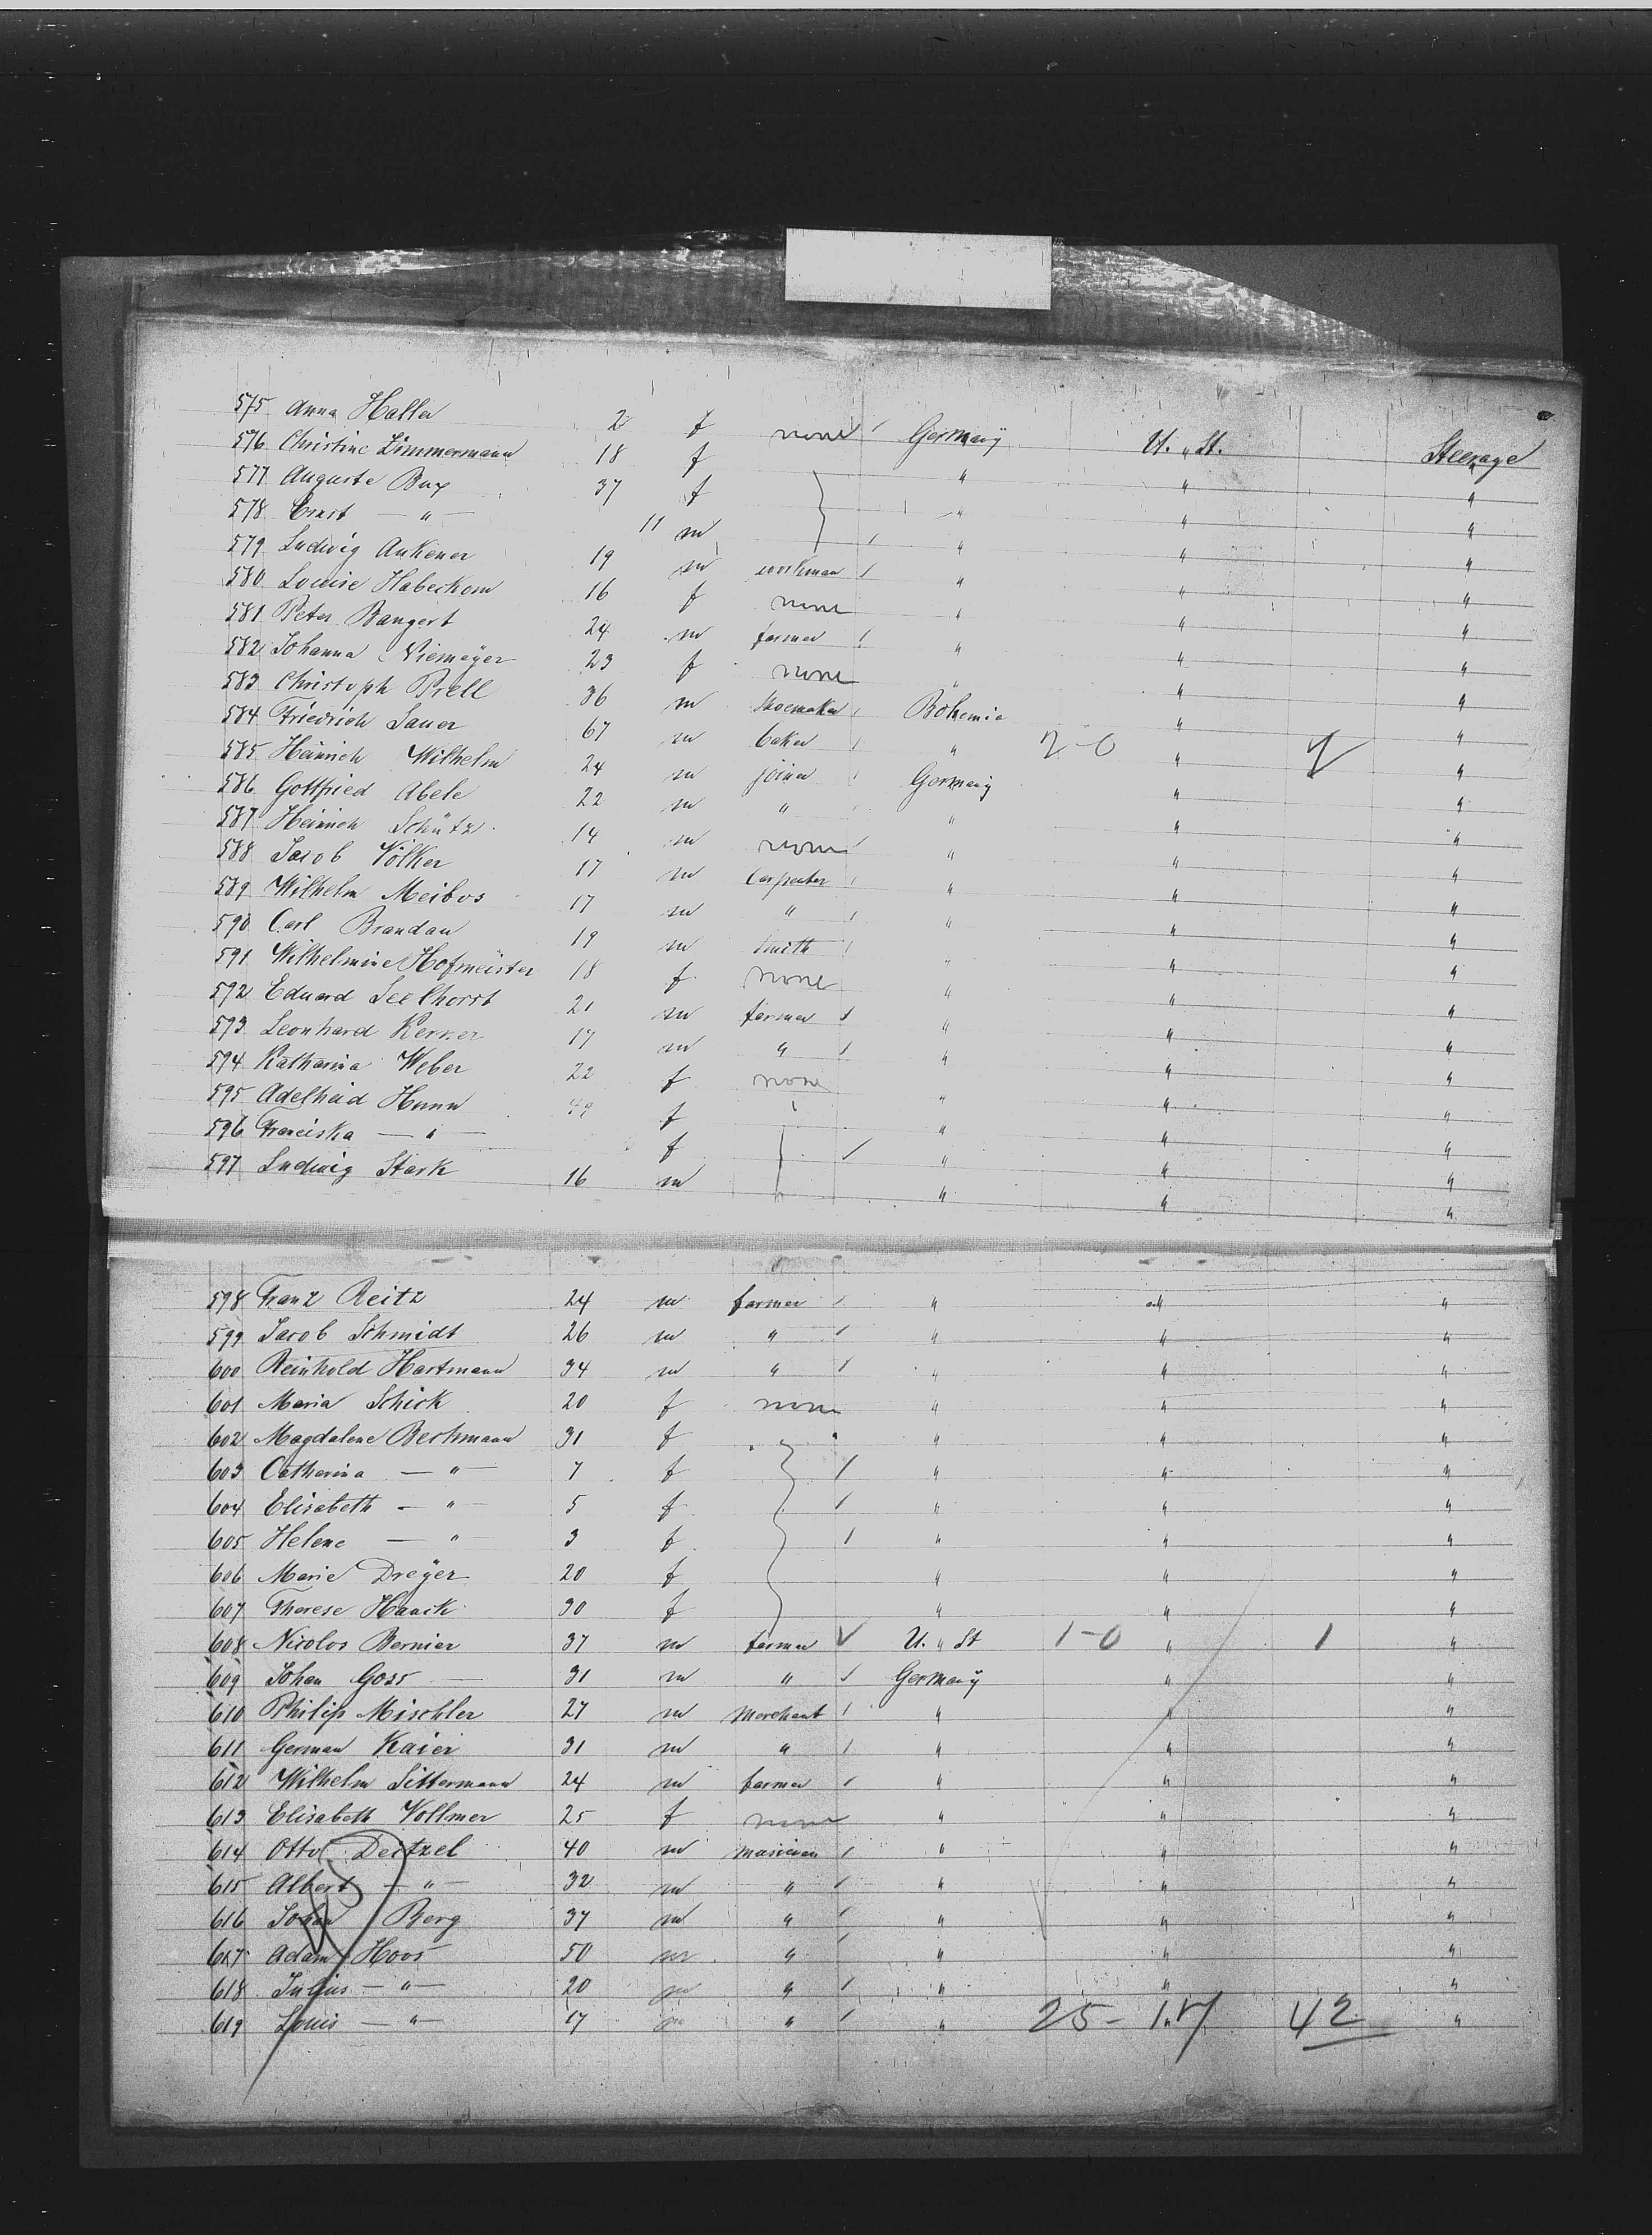 575 Anna Haller 2 f none Germany U. St. Steerage
576 Christine Zimmermann 18 f " " "
577 Auguste Bux 37 f " " "
578 Ernst — " — 11 m " " "
579 Ludwig Ankener 19 m workman " " "
580 Louise Haberkorn 16 f none " " "
581 Peter Bangert 24 m farmer " " "
582 Johanna Niemeÿer 23 f none " " "
583 Christoph Prell 36 m shoemaker Bohemia " "
584 Friedrich Sauer 67 m baker " 2-0 " 2 "
585 Heinrich Wilhelm 24 m joiner Germany " "
586 Gottfried Abele 22 m " " " "
587 Heinrich Schütz 14 m none " " "
588 Jacob Völker 17 m Carpenter " " "
589 Wilhelm Meibos 17 m " " " "
590 Carl Brandau 19 m Smith " " "
591 Wilhelmine Hofmeister 18 f none " " "
592 Eduard Seelhorst 21 m farmer " " "
593 Leonhard Kerker 17 m " " " "
594 Katharina Weber 22 f none " " "
595 Adelheid Hunn f " " "
596 Franciska — " — f " " "
597 Ludwig Stark 16 m " " "
598 Franz Reitz 24 m farmer " " "
599 Jacob Schmidt 26 m " " " "
600 Reinhold Hartmann 34 m " " " "
601 Maria Schick 20 f none " " "
602 Magdalene Bechmann 31 f " " "
603 Catharina — " — 7 f " " "
604 Elisabeth — " — 5 f " " "
605 Helene — " — 3 f " " "
606 Marie Dreÿer 20 f " " "
607 Therese Haack 30 f " " "
608 Nicolos Bernier 37 m farmer U. St 1-0 " 1 "
609 Johan Goss — 31 m " Germanÿ " "
610 Philip Mischler 27 m Merchant " " "
611 German Kaier 31 m " " " "
612 Wilhelm Sittermann 24 m farmer " " "
613 Elisabeth Vollmer 25 f none " " "
614 Otto Deitzel 40 m musician " " "
615 Albert — " — 32 m " " " "
616 Johan Berg 37 m " " " "
617 Adam Hoos 50 m " " " "
618 Julius — " — 20 m " " " "
619 Louis — " — 17 m " " 25 - 17 42 "